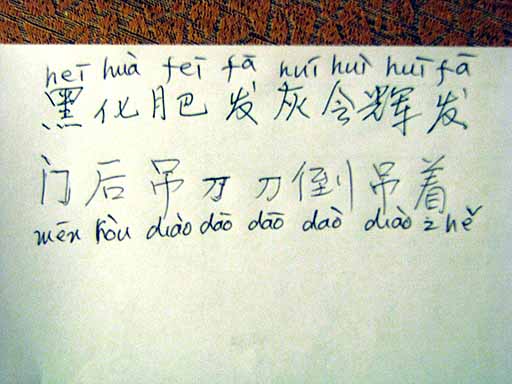 heī huà feī fā huī huì huī fā
黑化肥发灰会辉发
门后吊刀刀倒吊着
mén hòu diào dāo dāo daò diào zhě